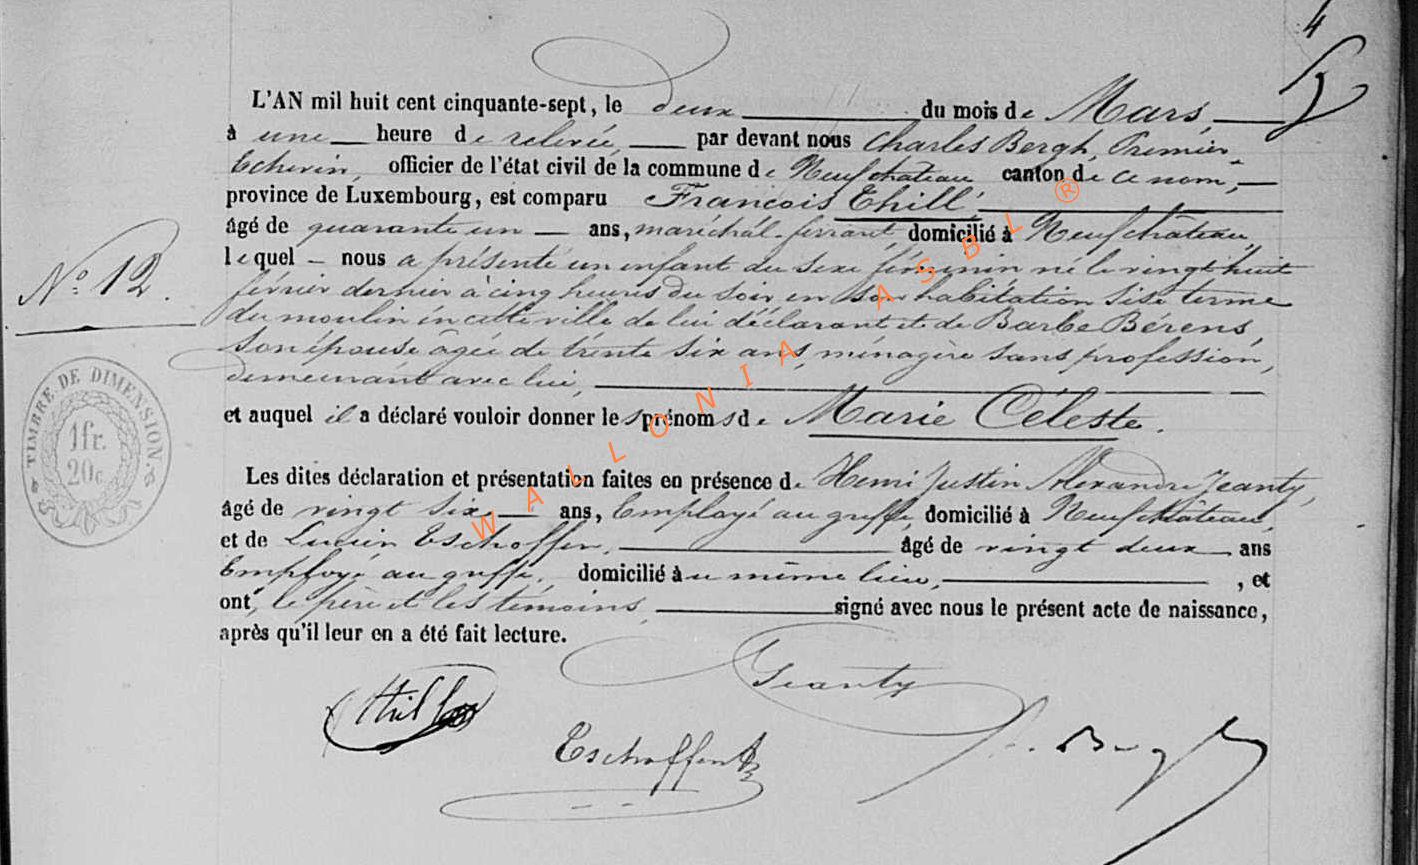 4
L'AN mil huit cent cinquante-sept, le deux du mois de Mars,
à une heure de relevée, par devant nous Charles Bergh, Premier
Echevin, officier de l'état civil de la commune de Neufchateau canton de ce nom,
province de Luxembourg, est comparu François Thill
âgé de quarante un ans, maréchal-ferrant, domicilié à Neufchâteau,
lequel nous a présenté un enfant du sexe féminin né le vingt huit
février dernier à cinq heures du soir en son habitation sise terme
du moulin en cette ville de lui déclarant et de Barbe Bérens,
son épouse âgée de trente six ans, ménagère sans profession,
demeurant avec lui,
et auquel il a déclaré vouloir donner les prénoms de Marie Céleste.
N° 12.
TIMBRE DE DIMENSION
1 fr.
20 c.
Les dites déclaration et présentation faites en présence de Henri Justin Alexandre Jeanty,
âgé de vingt six ans, Employé au greffe, domicilié à Neufchateau,
et de Lucien Eschoffen, âgé de vingt deux ans
Employé au greffe, domicilié au même lieu, , et
ont, le père et les témoins, signé avec nous le présent acte de naissance,
après qu'il leur en a été fait lecture.
Jeanty
Thill
Bergh
WALLONIA ASBL ®